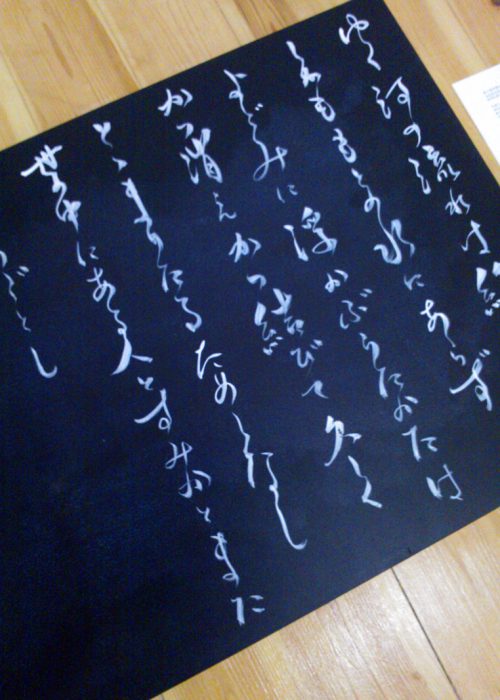 ゆく河の流れは絶
しかももとの水にあらず
よどみに浮かぶうたかたは
かつ消えかつ結びて久しく
とゝまりたるためしなし
世の中にある人とすみかとまた
ごとし